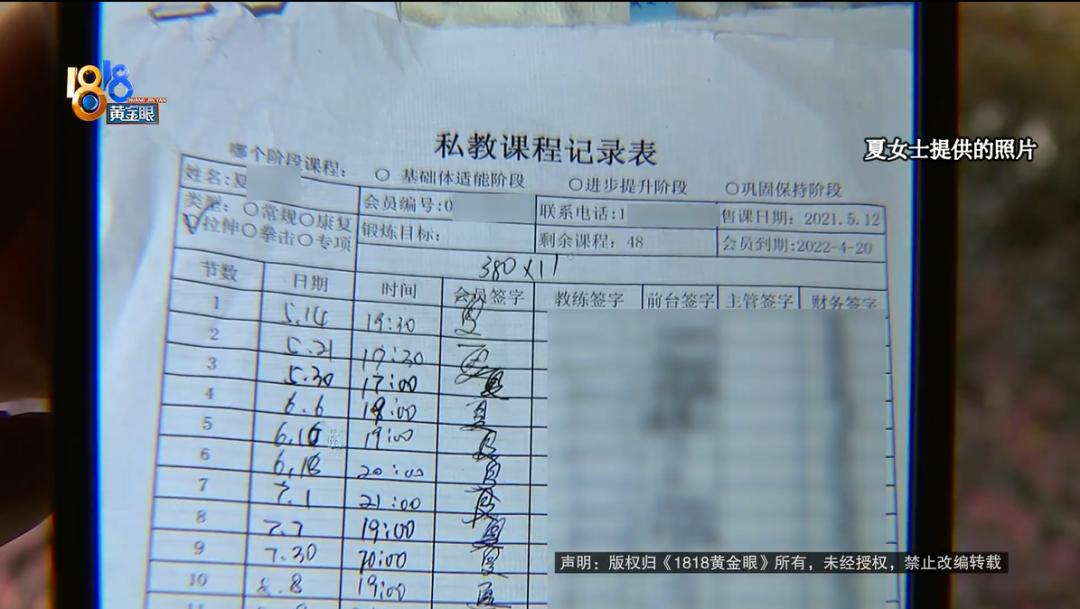 1818
HUANG JIN YAN
黄金眼
夏女士提供的照片
私教课程记录表
哪个阶段课程: ○ 基础体适能阶段 ○进步提升阶段 ○巩固保持阶段
姓名:夏 会员编号:0 联系电话:1 售课日期: 2021.5.12
类型: ○常规○康复
拉伸○拳击○专项 锻炼目标: 剩余课程: 48 会员到期:2022-4-20
380×11
节数 日期 时间 会员签字 教练签字 前台签字 主管签字 财务签字
1 5.14 19:30
2 5.21 19:30
3 5.30 17:00
4 6.6 18:00
5 6.16 19:00
6 6.18 20:00
7 7.1 21:00
8 7.7 19:00
9 7.30 20:00
10 8.8 19:00
声明：版权归《1818黄金眼》所有，未经授权，禁止改编转载